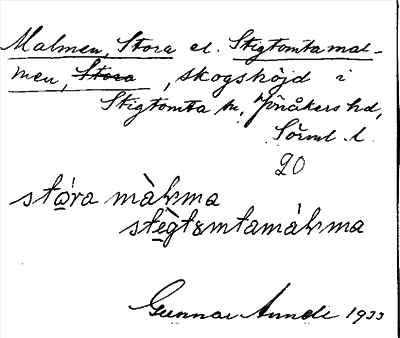 Malmen, Stora el. Stigtomtamal-
men, Stora, skogshöjd i
Stigtomta sn, Jönåkers hd,
Sörml. l.
20
stɷ́ra màƚma
stègtɷmtamàƚma
Gunnar Linde 1933